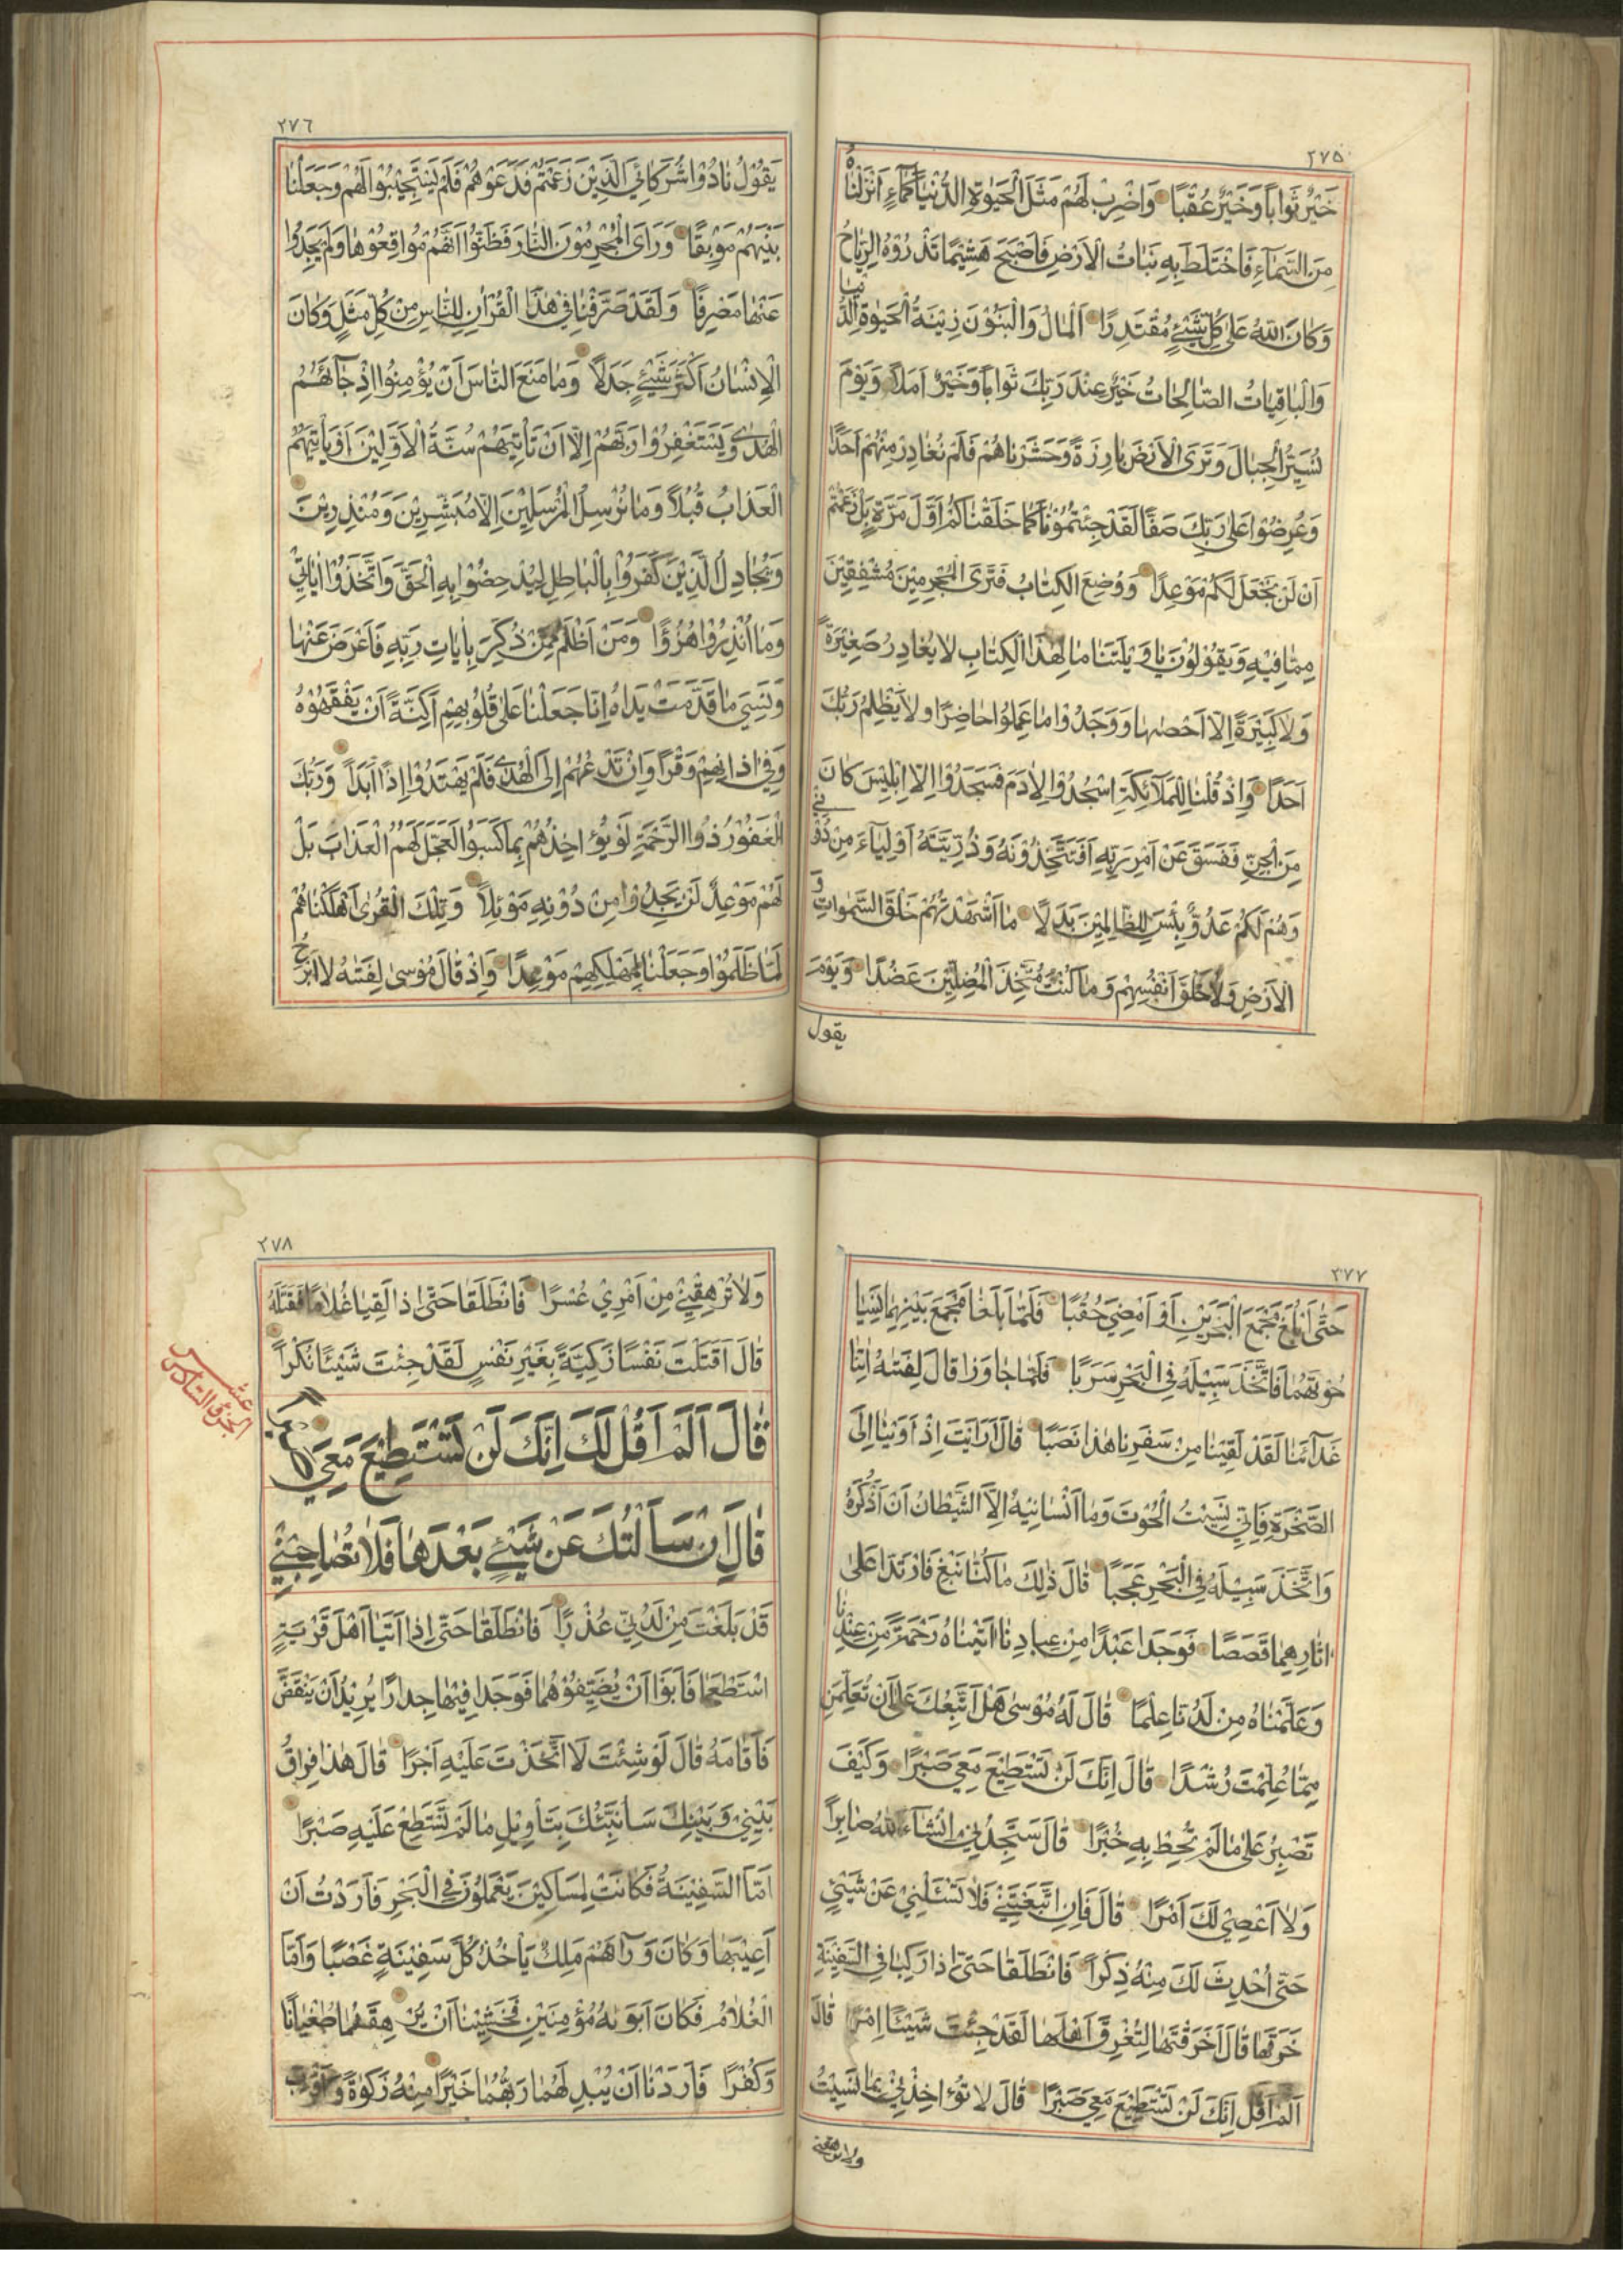 ٢٧٥
خَيْرٌ ثَوَاباً وَخَيْرٌ عُقْبًا وَاضْرِبْ لَهُمْ مَثَلَ الْحَيٰوةِ الدُّنْيَا كَمَاءٍ اَنْزَلْنَاهُ
مِنَ السَّمَاءِ فَاخْتَلَطَ بِهِ نَبَاتُ الْاَرْضِ فَاَصْبَحَ هَشِيْمًا تَذْرُوْهُ الرِّيَاحُ
وَكَانَ اللّٰهُ عَلٰى كُلِّ شَيْئٍ مُقْتَدِرًا اَلْمَالُ وَالْبَنُوْنَ زِيْنَةُ الْحَيٰوةِ الدُّنْيَا
وَالْبَاقِيَاتُ الصَّالِحَاتُ خَيْرٌ عِنْدَ رَبِّكَ ثَوَاباً وَخَيْرٌ اَمَلاً وَيَوْمَ
نُسَيِّرُ الْجِبَالَ وَتَرَى الْاَرْضَ بَارِزَةً وَحَشَرْنَاهُمْ فَلَمْ نُغَادِرْ مِنْهُمْ اَحَدًا
وَعُرِضُوْا عَلٰى رَبِّكَ صَفًّا لَقَدْ جِئْتُمُوْنَا كَمَا خَلَقْنَاكُمْ اَوَّلَ مَرَّةٍ بَلْ زَعَمْتُمْ
اَنْ لَنْ نَجْعَلَ لَكُمْ مَوْعِدًا وَوُضِعَ الْكِتَابُ فَتَرَى الْمُجْرِمِيْنَ مُشْفِقِيْنَ
مِمَّا فِيْهِ وَيَقُوْلُوْنَ يَا وَيْلَتَنَا مَا لِهٰذَا الْكِتَابِ لَا يُغَادِرُ صَغِيْرَةً
وَلَا كَبِيْرَةً اِلَّا اَحْصٰهَا وَوَجَدُوْا مَا عَمِلُوْا حَاضِرًا وَلَا يَظْلِمُ رَبُّكَ
اَحَدًا وَاِذْ قُلْنَا لِلْمَلَآئِكَةِ اسْجُدُوْا لِاٰدَمَ فَسَجَدُوْا اِلَّا اِبْلِيْسَ كَانَ
مِنَ الْجِنِّ فَفَسَقَ عَنْ اَمْرِ رَبِّهِ اَفَتَتَّخِذُوْنَهُ وَذُرِّيَّتَهُ اَوْلِيَآءَ مِنْ دُوْنِي
وَهُمْ لَكُمْ عَدُوٌّ بِئْسَ لِلظَّالِمِيْنَ بَدَلًا مَا اَشْهَدْتُهُمْ خَلْقَ السَّمٰوَاتِ وَ
الْاَرْضِ وَلَا خَلْقَ اَنْفُسِهِمْ وَمَا كُنْتُ مُتَّخِذَ الْمُضِلِّيْنَ عَضُدًا وَيَوْمَ
يقول
٢٧٦
يَقُوْلُ نَادُوْا شُرَكَائِيَ الَّذِيْنَ زَعَمْتُمْ فَدَعَوْهُمْ فَلَمْ يَسْتَجِيْبُوْا لَهُمْ وَجَعَلْنَا
بَيْنَهُمْ مَوْبِقًا وَرَاَى الْمُجْرِمُوْنَ النَّارَ فَظَنُّوْا اَنَّهُمْ مُوَاقِعُوْهَا وَلَمْ يَجِدُوْا
عَنْهَا مَصْرِفًا وَلَقَدْ صَرَّفْنَا فِيْ هٰذَا الْقُرْاٰنِ لِلنَّاسِ مِنْ كُلِّ مَثَلٍ وَكَانَ
الْاِنْسَانُ اَكْثَرَ شَيْئٍ جَدَلاً وَمَا مَنَعَ النَّاسَ اَنْ يُؤْمِنُوْا اِذْ جَآئَهُمُ
الْهُدٰى وَيَسْتَغْفِرُوْا رَبَّهُمْ اِلَّا اَنْ تَأْتِيَهُمْ سُنَّةُ الْاَوَّلِيْنَ اَوْ يَأْتِيَهُمُ
الْعَذَابُ قُبُلاً وَمَا نُرْسِلُ الْمُرْسَلِيْنَ اِلَّا مُبَشِّرِيْنَ وَمُنْذِرِيْنَ
وَيُجَادِلُ الَّذِيْنَ كَفَرُوْا بِالْبَاطِلِ لِيُدْحِضُوْا بِهِ الْحَقَّ وَاتَّخَذُوْا اٰيَاتِيْ
وَمَا اُنْذِرُوْا هُزُؤًا وَمَنْ اَظْلَمُ مِمَّنْ ذُكِّرَ بِاٰيَاتِ رَبِّهِ فَاَعْرَضَ عَنْهَا
وَنَسِيَ مَا قَدَّمَتْ يَدَاهُ اِنَّا جَعَلْنَا عَلٰى قُلُوْبِهِمْ اَكِنَّةً اَنْ يَفْقَهُوْهُ
وَفِيْ اٰذَانِهِمْ وَقْرًا وَاِنْ تَدْعُهُمْ اِلَى الْهُدٰى فَلَمْ يَهْتَدُوْا اِذًا اَبَداً وَرَبُّكَ
الْغَفُوْرُ ذُوا الرَّحْمَةِ لَوْ يُؤٰاخِذُهُمْ بِمَا كَسَبُوْا لَعَجَّلَ لَهُمُ الْعَذَابَ بَلْ
لَهُمْ مَوْعِدٌ لَنْ يَجِدُوْا مِنْ دُوْنِهِ مَوْئِلاً وَتِلْكَ الْقُرٰى اَهْلَكْنَاهُمْ
لَمَّا ظَلَمُوْا وَجَعَلْنَا لِمَهْلِكِهِمْ مَوْعِدًا وَاِذْ قَالَ مُوْسٰى لِفَتٰهُ لَا اَبْرَحُ
٢٧٧
حَتّٰى اَبْلُغَ مَجْمَعَ الْبَحْرَيْنِ اَوْ اَمْضِيَ حُقُبًا فَلَمَّا بَلَغَا مَجْمَعَ بَيْنِهِمَا نَسِيَا
حُوْتَهُمَا فَاتَّخَذَ سَبِيْلَهُ فِي الْبَحْرِ سَرَبًا فَلَمَّا جَاوَزَا قَالَ لِفَتٰهُ اٰتِنَا
غَدَآءَنَا لَقَدْ لَقِيْنَا مِنْ سَفَرِنَا هٰذَا نَصَبًا قَالَ اَرَاَيْتَ اِذْ اَوَيْنَا اِلَى
الصَّخْرَةِ فَاِنِّيْ نَسِيْتُ الْحُوْتَ وَمَا اَنْسَانِيْهُ اِلَّا الشَّيْطَانُ اَنْ اَذْكُرَهُ
وَاتَّخَذَ سَبِيْلَهُ فِي الْبَحْرِ عَجَبًا قَالَ ذٰلِكَ مَا كُنَّا نَبْغِ فَارْتَدَّا عَلٰى
اٰثَارِهِمَا قَصَصًا فَوَجَدَا عَبْدًا مِنْ عِبَادِنَا اٰتَيْنَاهُ رَحْمَةً مِنْ عِنْدِنَا
وَعَلَّمْنَاهُ مِنْ لَدُنَّا عِلْمًا قَالَ لَهُ مُوْسٰى هَلْ اَتَّبِعُكَ عَلٰى اَنْ تُعَلِّمَنِ
مِمَّا عُلِّمْتَ رُشْدًا قَالَ اِنَّكَ لَنْ تَسْتَطِيْعَ مَعِيَ صَبْرًا وَكَيْفَ
تَصْبِرُ عَلٰى مَا لَمْ تُحِطْ بِهِ خُبْرًا قَالَ سَتَجِدُنِيْ اِنْشَاءَ اللّٰهُ صَابِراً
وَلَا اَعْصِيْ لَكَ اَمْرًا قَالَ فَاِنِ اتَّبَعْتَنِيْ فَلَا تَسْئَلْنِيْ عَنْ شَيْئٍ
حَتّٰى اُحْدِثَ لَكَ مِنْهُ ذِكْراً فَانْطَلَقَا حَتّٰى اِذَا رَكِبَا فِي السَّفِيْنَةِ
خَرَقَهَا قَالَ اَخَرَقْتَهَا لِتُغْرِقَ اَهْلَهَا لَقَدْ جِئْتَ شَيْئًا اِمْرًا قَالَ
اَلَمْ اَقُلْ اِنَّكَ لَنْ تَسْتَطِيْعَ مَعِيَ صَبْرًا قَالَ لَا تُؤٰاخِذْنِيْ بِمَا نَسِيْتُ
ولا ترهقني
٢٧٨
وَلَا تُرْهِقْنِيْ مِنْ اَمْرِيْ عُسْرًا فَانْطَلَقَا حَتّٰى اِذَا لَقِيَا غُلَامًا فَقَتَلَهُ
قَالَ اَقَتَلْتَ نَفْسًا زَكِيَّةً بِغَيْرِ نَفْسٍ لَقَدْ جِئْتَ شَيْئًا نُكْرًا
الجزؤ السادس عشر
قَالَ اَلَمْ اَقُلْ لَكَ اِنَّكَ لَنْ تَسْتَطِيْعَ مَعِيَ صَبْرًا
قَالَ اِنْ سَاَلْتُكَ عَنْ شَيْئٍ بَعْدَهَا فَلَا تُصَاحِبْنِيْ
قَدْ بَلَغْتَ مِنْ لَدُنِّيْ عُذْرًا فَانْطَلَقَا حَتّٰى اِذَا اَتَيَا اَهْلَ قَرْيَةٍ
اسْتَطْعَمَا فَاَبَوْا اَنْ يُضَيِّفُوْهُمَا فَوَجَدَا فِيْهَا جِدَارًا يُرِيْدُ اَنْ يَنْقَضَّ
فَاَقَامَهُ قَالَ لَوْ شِئْتَ لَا اتَّخَذْتَ عَلَيْهِ اَجْرًا قَالَ هٰذَا فِرَاقُ
بَيْنِيْ وَبَيْنِكَ سَاُنَبِّئُكَ بِتَأْوِيْلِ مَا لَمْ تَسْتَطِعْ عَلَيْهِ صَبْرًا
اَمَّا السَّفِيْنَةُ فَكَانَتْ لِمَسَاكِيْنَ يَعْمَلُوْنَ فِي الْبَحْرِ فَاَرَدْتُ اَنْ
اَعِيْبَهَا وَكَانَ وَرَآءَهُمْ مَلِكٌ يَأْخُذُ كُلَّ سَفِيْنَةٍ غَصْبًا وَاَمَّا
الْغُلَامُ فَكَانَ اَبَوَاهُ مُؤْمِنَيْنِ فَخَشِيْنَا اَنْ يُرْهِقَهُمَا طُغْيَانًا
وَكُفْرًا فَاَرَدْنَا اَنْ يُبْدِلَهُمَا رَبُّهُمَا خَيْرًا مِنْهُ زَكٰوةً وَاَقْرَبَ